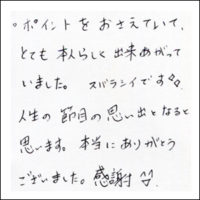 。ポイントをおさえていて、
とても本人らしく出来あがって
いました。 スバラシイです♪♪
人生の節目の思い出となると
思います。本当にありがとう
ございました。感謝